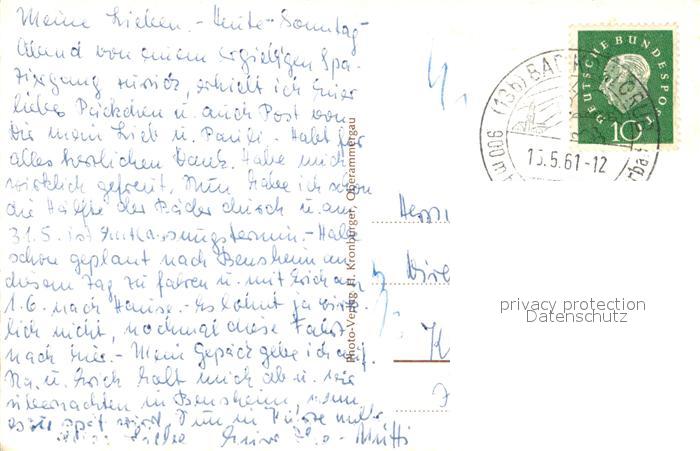 Meine Lieben. - Heute - Sonntag -
Abend von einem ergiebigen Spa-
ziergang zurück, erhielt ich Euer
liebes Päckchen u. auch Post von
Dir mein Lieb u. Pauli. Habt für
alles herzlichen Dank. Habe mich
wirklich gefreut. Nun habe ich schon
die Hälfte der Bäder durch u. am
31.5. ist Entlassungstermin. - Habe
schon geplant nach Bensheim an
diesem Tag zu fahren u. mit Erich am
1.6. nach Hause. - Es lohnt ja wirk-
lich nicht, nochmal diese Fahrt
nach hier. - Mein Gepäck gebe ich auf.
Na. u. Erich holt mich ab u. wir
übernachten in Bensheim, wenn
es zu spät wird. Nun in Kürze mehr
Liebe Mutti
Photo-Verlag H. Kronburger, Oberammergau
DEUTSCHE BUNDESPOST
10
(13b) BAD
15.5.61-12
900
privacy protection
Datenschutz